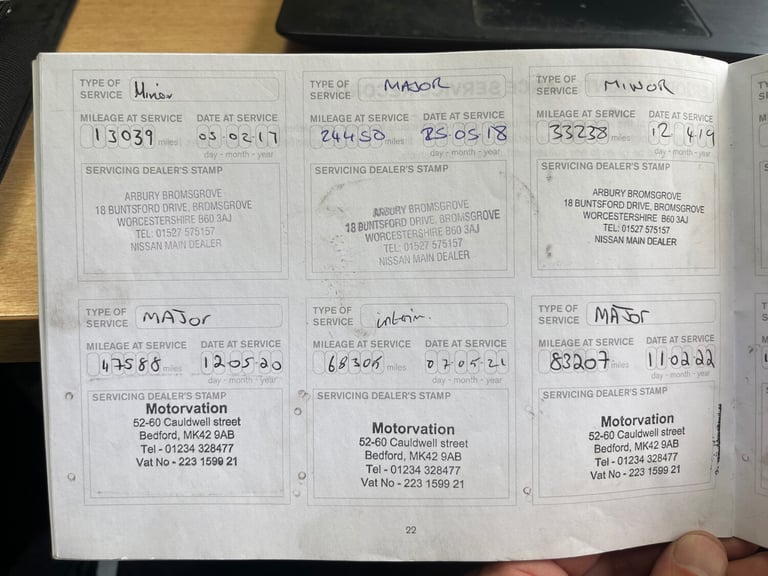 TYPE OF SERVICE Minor
MILEAGE AT SERVICE DATE AT SERVICE
13039 miles 05-02-17
day - month - year
SERVICING DEALER'S STAMP
ARBURY BROMSGROVE
18 BUNTSFORD DRIVE, BROMSGROVE
WORCESTERSHIRE B60 3AJ
TEL: 01527 575157
NISSAN MAIN DEALER
TYPE OF SERVICE MAJOR
MILEAGE AT SERVICE DATE AT SERVICE
24450 miles 25 05 18
day - month - year
SERVICING DEALER'S STAMP
ARBURY BROMSGROVE
18 BUNTSFORD DRIVE, BROMSGROVE
WORCESTERSHIRE B60 3AJ
TEL: 01527 575157
NISSAN MAIN DEALER
TYPE OF SERVICE MINOR
MILEAGE AT SERVICE DATE AT SERVICE
33238 miles 12 4 19
day - month - year
SERVICING DEALER'S STAMP
ARBURY BROMSGROVE
18 BUNTSFORD DRIVE, BROMSGROVE
WORCESTERSHIRE B60 3AJ
TEL: 01527 575157
NISSAN MAIN DEALER
TYPE OF SERVICE MAJOR
MILEAGE AT SERVICE DATE AT SERVICE
47588 miles 12-05-20
day - month - year
SERVICING DEALER'S STAMP
Motorvation
52-60 Cauldwell street
Bedford, MK42 9AB
Tel - 01234 328477
Vat No - 223 1599 21
TYPE OF SERVICE interim.
MILEAGE AT SERVICE DATE AT SERVICE
miles 07-05-21
day - month - year
SERVICING DEALER'S STAMP
Motorvation
52-60 Cauldwell street
Bedford, MK42 9AB
Tel - 01234 328477
Vat No - 223 1599 21
TYPE OF SERVICE MAJOR
MILEAGE AT SERVICE DATE AT SERVICE
83207 miles 11 02 22
day - month - year
SERVICING DEALER'S STAMP
Motorvation
52-60 Cauldwell street
Bedford, MK42 9AB
Tel - 01234 328477
Vat No - 223 1599 21
22